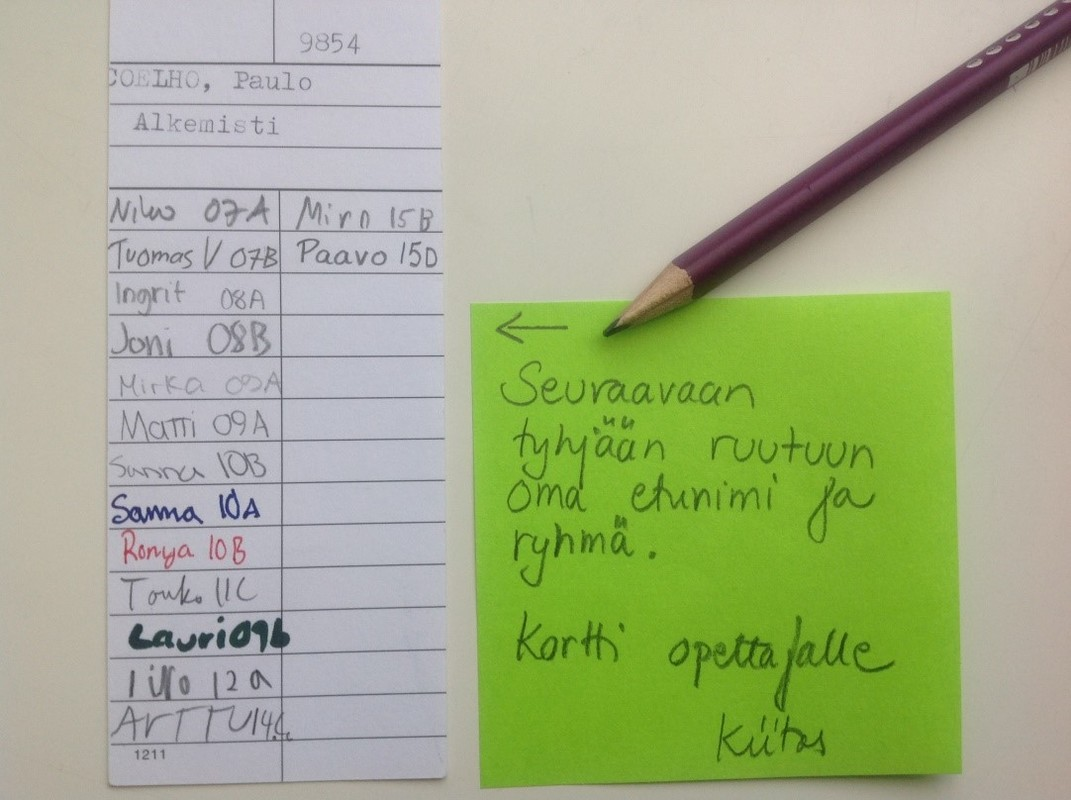 9854
COELHO, Paulo
Alkemisti
Niko 07A
Tuomas V 07B
Ingrit 08A
Joni 08B
Mirka 09A
Matti 09A
Sanna 10B
Sanna 10A
Ronya 10B
Touko 11C
Lauri 09b
12a
ARTTU 14C
1211
Miro 15B
Paavo 15D
←
Seuraavaan
tyhjään ruutuun
oma etunimi ja
ryhmä.
Kortti opettajalle
Kiitos